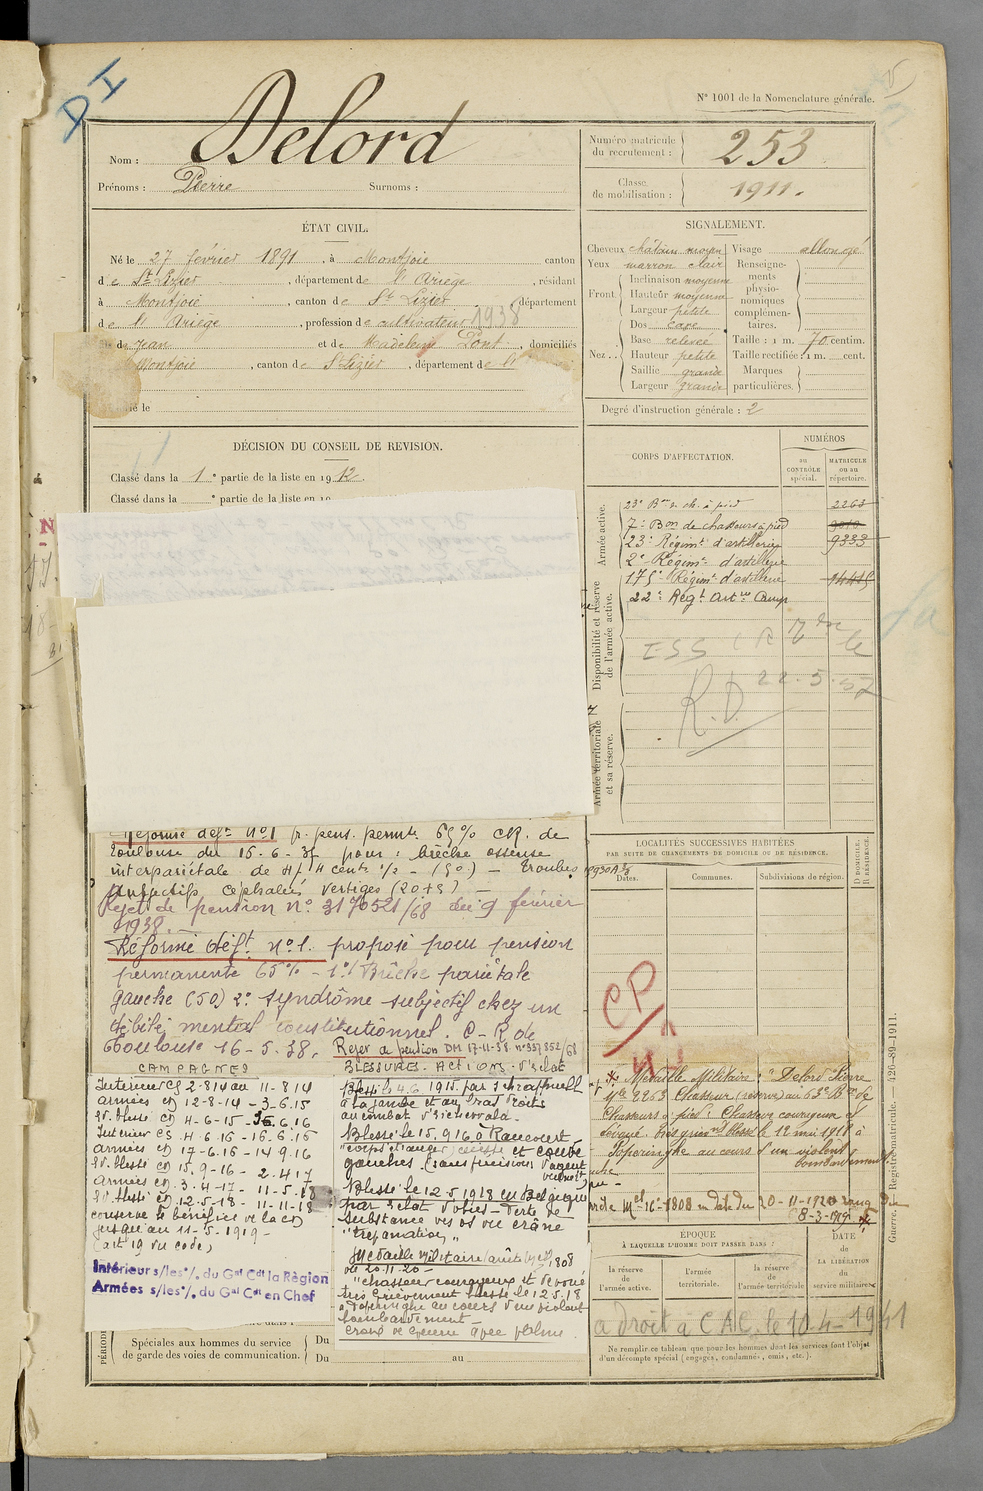 DI
N° 1001 de la Nomenclature générale.
Nom : Delord
Prénoms : Pierre Surnoms :
Numéro matricule du recrutement : 253
Classe de mobilisation : 1911.
ÉTAT CIVIL.
Né le 27 février 1891, à Montjoie canton
de St Lizier, département de l'Ariège, résidant
à Montjoie, canton de St Lizier, département
de l'Ariège, profession de cultivateur 1938
fils de Jean et de Madeleine Pont, domiciliés
Montjoie, canton de St Lizier, département de l'
Marié le
SIGNALEMENT.
Cheveux châtain moyen
Yeux marron clair
Front. Inclinaison moyenne
Hauteur moyenne
Largeur petite
Nez.. Dos cave
Base relevée
Hauteur petite
Saillie grande
Largeur grande
Visage allongé
Renseignements physionomiques complémentaires.
Taille : 1 m. 70 centim.
Taille rectifiée : 1 m. cent.
Marques particulières.
Degré d'instruction générale : 2
DÉCISION DU CONSEIL DE REVISION.
Classé dans la 1e partie de la liste en 1912.
Classé dans la e partie de la liste en 19
CORPS D'AFFECTATION.
NUMÉROS
au CONTRÔLE spécial.
MATRICULE ou au répertoire.
Armée active.
23e Bon de ch. à pied 2263
7e Bon de chasseurs à pied
23e Régimt d'artillerie 9333
2e Régimt d'artillerie
175e Régimt d'artillerie
22e Régt Art
Disponibilité et réserve de l'armée active.
R.D. 22.5.37
Armée territoriale et sa réserve.
Réformé déft n°1 p. pens. permte 65% CR. de
Toulouse du 15-6-37 pour : brèche osseuse
interpariétale de 4/4 cent 1/2 - (50) - Troubles
subjectifs céphalées vertiges (20+5) -
Rejet de pension n° 3176521/68 du 9 février
1938.
Réformé déft n°1. proposé pour pension
permanente 65% - 1°/ Brèche pariétale
gauche (50) 2° syndrôme subjectif chez un
débile mental constitutionnel. C-R de
Toulouse 16-5-38. Rejet de pension DM 17-11-38 n° 357352/68
LOCALITÉS SUCCESSIVES HABITÉES
PAR SUITE DE CHANGEMENTS DE DOMICILE OU DE RÉSIDENCE.
Dates. Communes. Subdivisions de région. D. DOMICILE. R. RÉSIDENCE.
CP
CAMPAGNES
Intérieur CS 2-8-14 au 11-8-14
armées CD 12-8-14 - 3-6-15
Et. blessé CD 4-6-15 - 6.16
Intérieur CS
armées CD 17-6-16 - 14 9.16
Et. blessé CD 15-9-16 - 2.4.17
armées CD 3-4-17 - 11-5-18
Et. blessé CD 12-5-18 - 11-11-18
conserve le bénéfice de la CD
jusqu'au 11-5-1919-
(art 19 du code)
Intérieur s/les °/. du Gal Cdt la Région
Armées s/les °/. du Gal Cdt en Chef
BLESSURES. ACTIONS d'éclat
Blessé le 4.6 1915. par schrapnell
à la jambe et au bras droits
au combat d'
Blessé le 15.9 16 à Rancourt
"corps étranger, cuisse et coude
gauches. (sans précision d'agent
Blessé le 12.5.1918 en Belgique
par éclat d'obus - Perte de
substance des os du crâne
"trépanation"
Médaille militaire (arrêté 1808
du 20-11-20 -
"chasseur courageux et dévoué
très grièvement blessé le 12.5.18
à Poperinghe au cours d'un violent
bombardement -
Croix de guerre avec palme.
Médaille Militaire : "Delord Pierre
Mle 2263 Chasseur (réserve) au 53e Bon de
Chasseurs à pied : Chasseur courageux et
dévoué. Très grièvt blessé le 12 mai 1918 à
Poperinghe au cours d'un violent
bombardement
Mel 16-1808 en date du 20-11-1920 rang du
8-3-1919
ÉPOQUE
À LAQUELLE L'HOMME DOIT PASSER DANS :
la réserve de l'armée active.
l'armée territoriale.
la réserve de l'armée territoriale
DATE de LA LIBÉRATION du service militaire.
a droit à C A C. le 10-4-1941
Ne remplir ce tableau que pour les hommes dont les services font l'objet
d'un décompte spécial (engagés, condamnés, omis, etc.).
Spéciales aux hommes du service
de garde des voies de communication.
Du
Du au
Guerre. Registre matricule. — 420-89-1911.